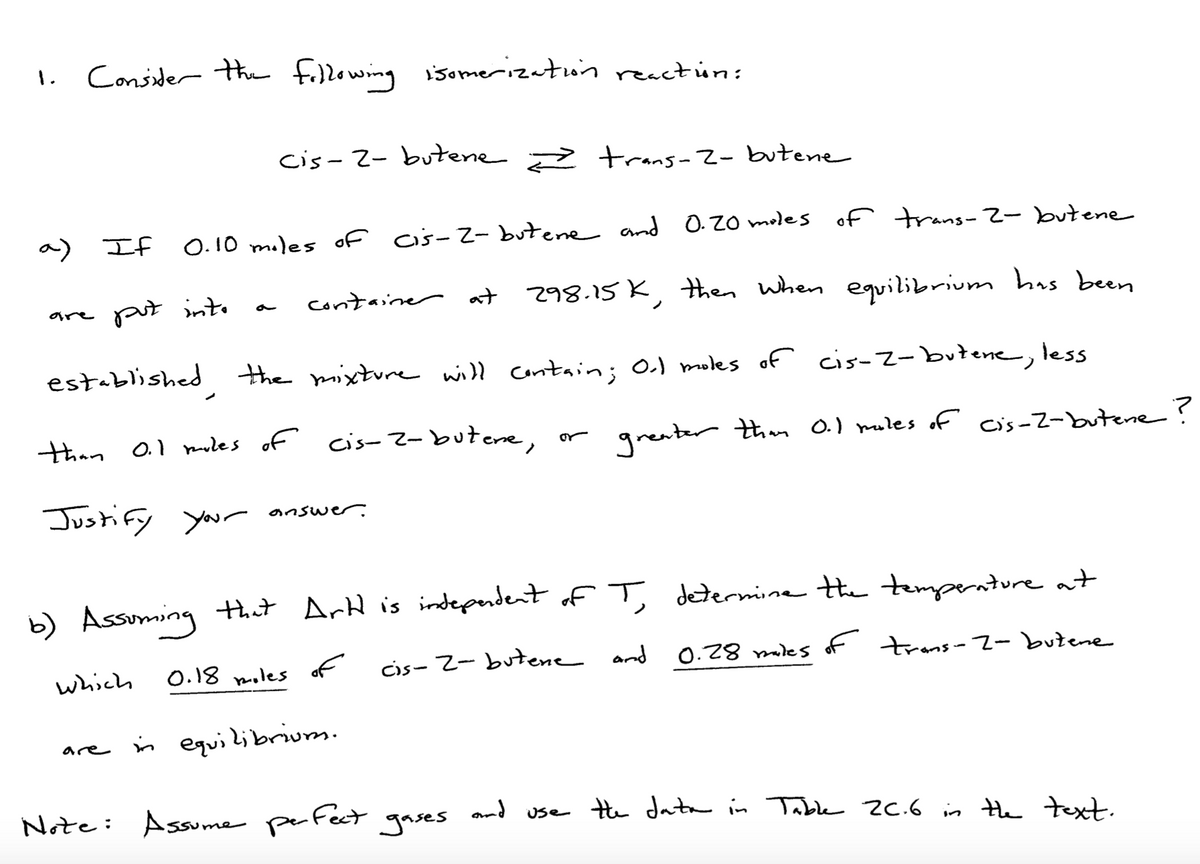 1. Consider the following isomerization reaction:
cis-2-butene ⇌ trans-2-butene
a) If 0.10 moles of cis-2-butene and 0.20 moles of trans-2-butene
are put into a container at 298.15 K, then when equilibrium has been
established, the mixture will contain; 0.1 moles of cis-2-butene, less
than 0.1 moles of cis-2-butene, or greater than 0.1 moles of cis-2-butene?
Justify your answer.
b) Assuming that ΔrH is independent of T, determine the temperature at
which 0.18 moles of cis-2-butene and 0.28 moles of trans-2-butene
are in equilibrium.
Note: Assume perfect gases and use the data in Table 2C.6 in the text.